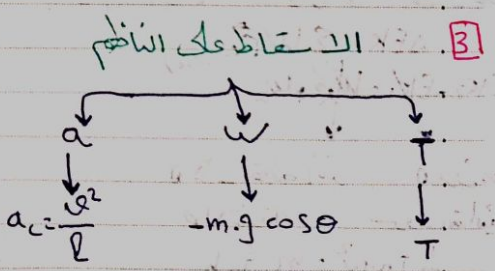 3 الاسقاط على الناظم
a W T
a_c = v²/l -m.g cosθ T